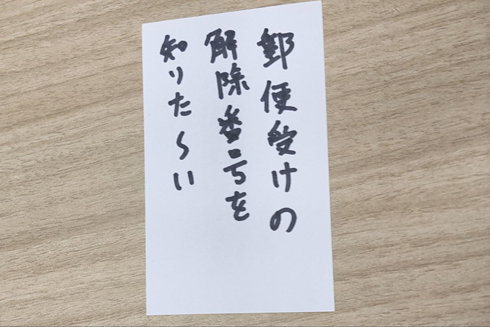 郵便受けの
解除番号を
知りた〜い